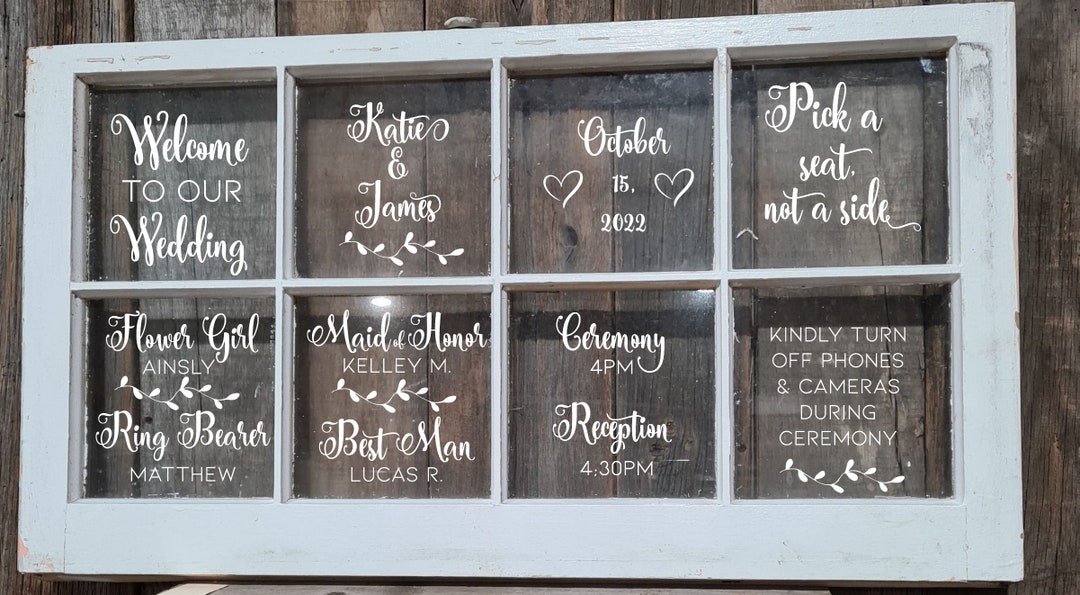 Welcome
TO OUR
Wedding
Katie
&
James
October
15,
2022
Pick a
seat,
not a side
Flower Girl
AINSLY
Ring Bearer
MATTHEW
Maid of Honor
KELLEY M.
Best Man
LUCAS R.
Ceremony
4PM
Reception
4:30PM
KINDLY TURN
OFF PHONES
& CAMERAS
DURING
CEREMONY